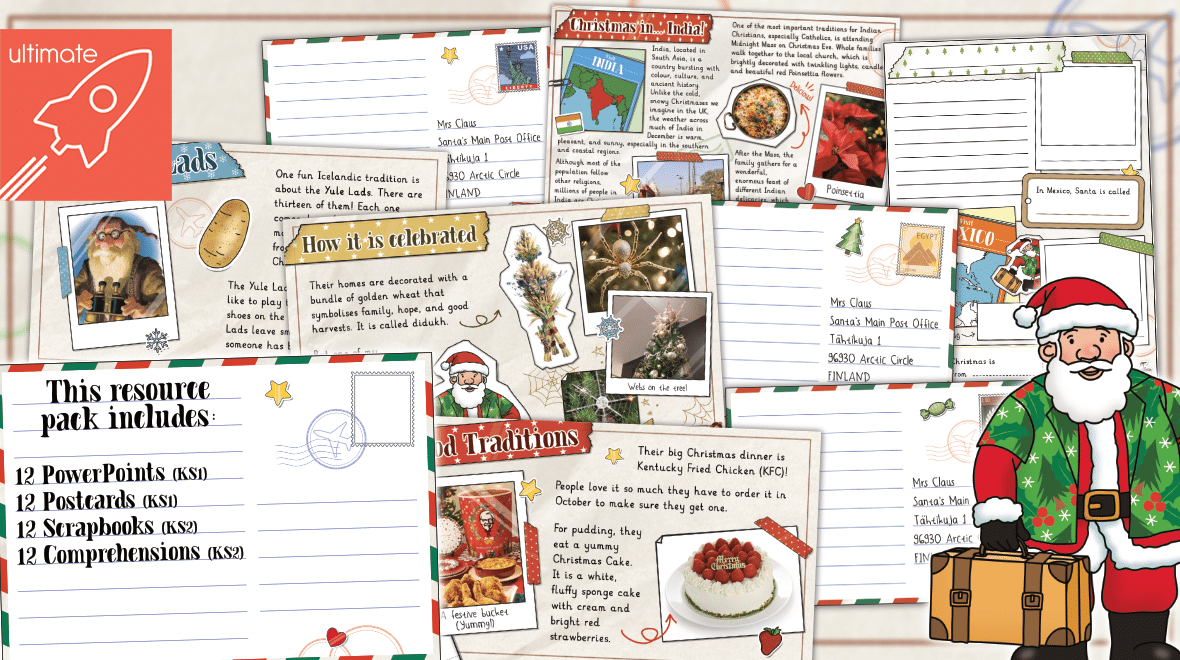 ultimate
This resource
pack includes:
12 PowerPoints (KS1)
12 Postcards (KS1)
12 Scrapbooks (KS2)
12 Comprehensions (KS2)
USA
LIBERTY
Mrs Claus
Santa's Main Post Office
Tähtikuja 1
96930 Arctic Circle
FINLAND
Christmas in... India!
India, located in
South Asia, is a
country bursting with
colour, culture, and
ancient history.
Unlike the cold,
snowy Christmases we
imagine in the UK,
the weather across
much of India in
December is warm,
pleasant, and sunny, especially in the southern
and coastal regions.
Although most of the
population follow
other religions,
millions of people in
INDIA
One of the most important traditions for Indian
Christians, especially Catholics, is attending
Midnight Mass on Christmas Eve. Whole families
walk together to the local church, which is
brightly decorated with twinkling lights, candles
and beautiful red Poinsettia flowers.
Delicious!
After the Mass, the
family gathers for a
wonderful,
enormous feast of
different Indian
delicacies, which
Poinsettia
In Mexico, Santa is called
Visit
XICO
hristmas is
rom
Lads
One fun Icelandic tradition is
about the Yule Lads. There are
thirteen of them! Each one
The Yule Lad
like to play
shoes on the
Lads leave sm
someone has
How it is celebrated
Their homes are decorated with a
bundle of golden wheat that
symbolises family, hope, and good
harvests. It is called didukh.
Webs on the tree!
EGYPT
Mrs Claus
Santa's Main Post Office
Tähtikuja 1
96930 Arctic Circle
FINLAND
od Traditions
Their big Christmas dinner is
Kentucky Fried Chicken (KFC)!
People love it so much they have to order it in
October to make sure they get one.
For pudding, they
eat a yummy
Christmas Cake.
It is a white,
fluffy sponge cake
with cream and
bright red
strawberries.
A festive bucket
(Yummy!)
Merry
Christmas
Mrs Claus
Santa's Main
Tähtikuja 1
96930 Arctic
FIN